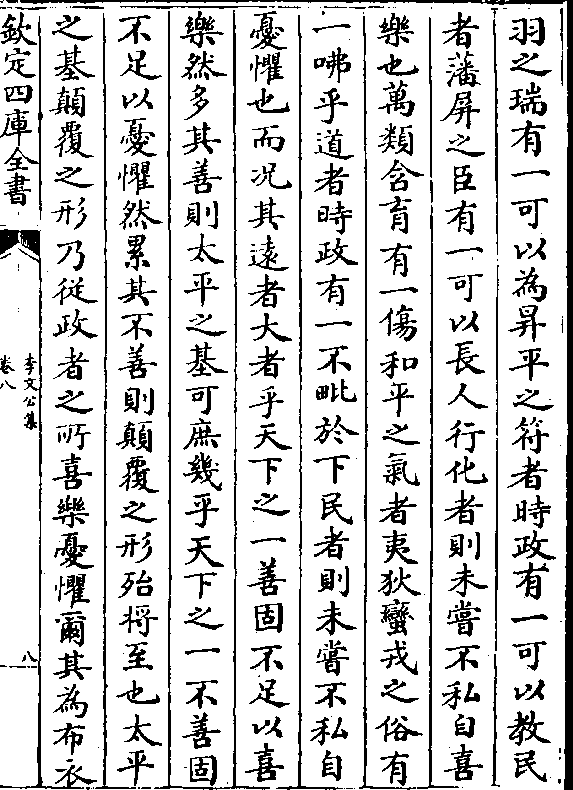 羽之瑞有一可以為昇平之符者時政有一可以教民
者藩屏之臣有一可以長人行化者則未嘗不私自喜
樂也萬類含育有一傷和平之氣者夷狄蠻戎之俗有
一咈乎道者時政有一不毗於下民者則未嘗不私自
憂懼也而况其遠者大者乎天下之一善固不足以喜
樂然多其善則太平之基可庶幾乎天下之一不善固
不足以憂懼然累其不善則顛覆之形殆将至也太平
之基顛覆之形乃従政者之所喜樂憂懼爾其為布衣
欽定四庫全書
李文公集
卷八
八